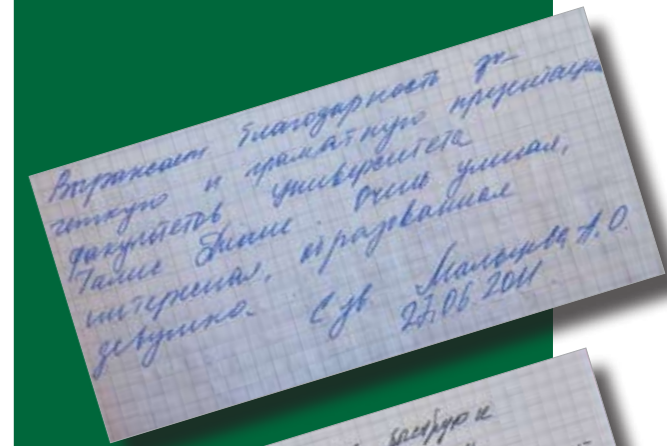 Выражаем благодарность за
четкую и грамотную презентацию
факультетов университета
Очень умная,
интересная, образованная
девушка. С ув. Мальцева А.О.
27.06.2011
быструю и